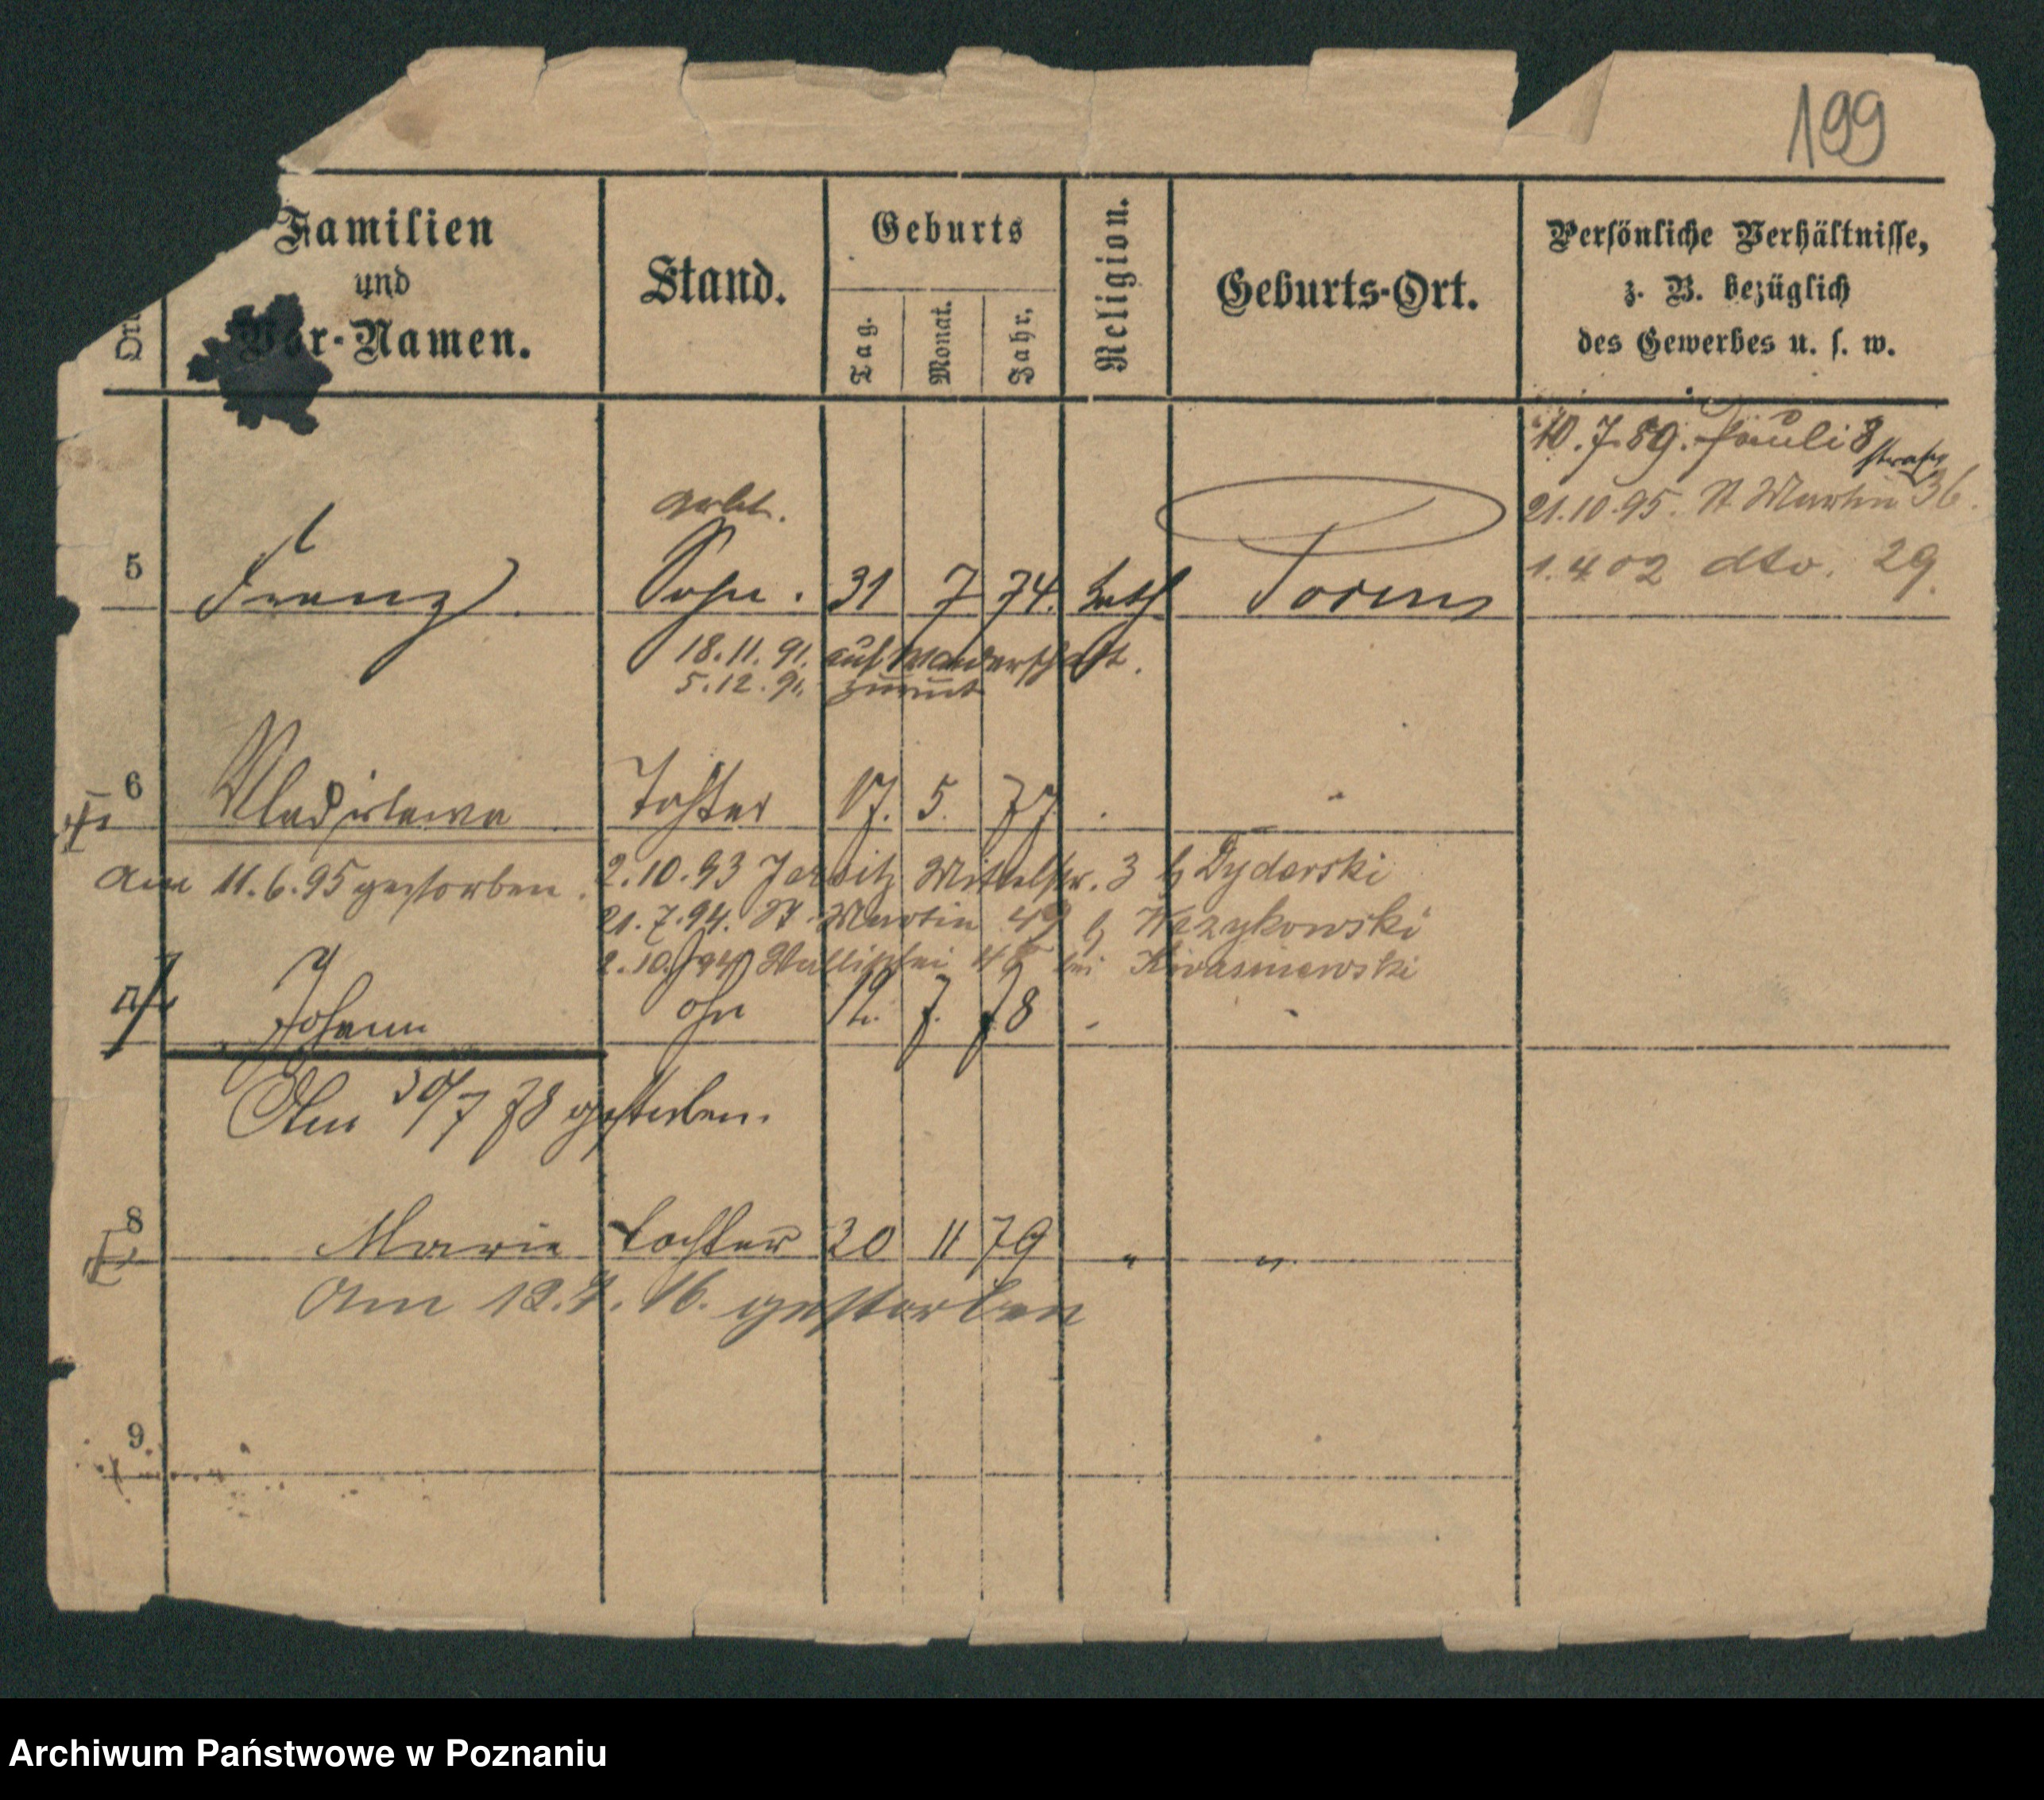 199
Familien
und
Vor-Namen.
Stand.
Geburts
Tag.
Monat.
Jahr.
Religion.
Geburts-Ort.
Persönliche Verhältnisse,
z. B. bezüglich
des Gewerbes u. s. w.
10.7.89. Pauli 8
strasse
21.10.95. St Martin 36.
1.4.02 dto. 29.
Arbt.
5 Franz Sohn. 31 7 74. kath Posen
18.11.91. auf Wanderschaft.
5.12.91. zurück
6 Wladislawa Tochter 17. 5. 77.
am 11.6.95 gestorben.
2.10.93 Jersitz Mittelstr. 3 b Dyderski
21.7.94. St. Martin 49 b Krzykowski
2.10.94 Wallischei bei
7 Johann Sohn 12. 7. 78 -
Am 30/7 78 gestorben.
8 Marie Tochter 20 11 79 " "
Am 12.4.16. gestorben
9
Archiwum Państwowe w Poznaniu